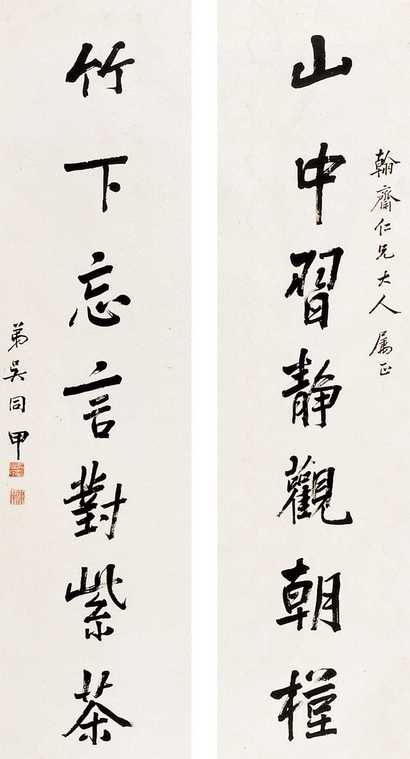 翰齋仁兄大人 屬正
山中習静觀朝槿
竹下忘言對紫茶
弟吳同甲